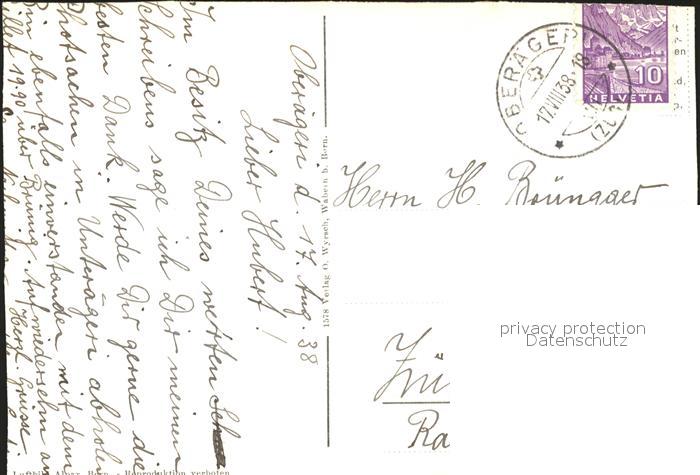 Oberägeri d. 17. Aug. 38
Lieber Hubert!
Im Besitz Deines netten
Schreibens sage ich Dir meinen
besten Dank. Werde Dir gerne die
Photsachen in Unterägeri abholen
Bin ebenfalls einverstanden mit dem
Billet 19.90 über Brünig. Auf wiedersehn am
Herzl. Grüsse
1578 Verlag O. Wyrsch, Wabern b. Bern.
Reproduktion verboten
OBERÄGERI
17.VIII.38.18
(ZUG)
10
HELVETIA
Herrn H. Brüngger
privacy protection
Datenschutz
Zü
Ra